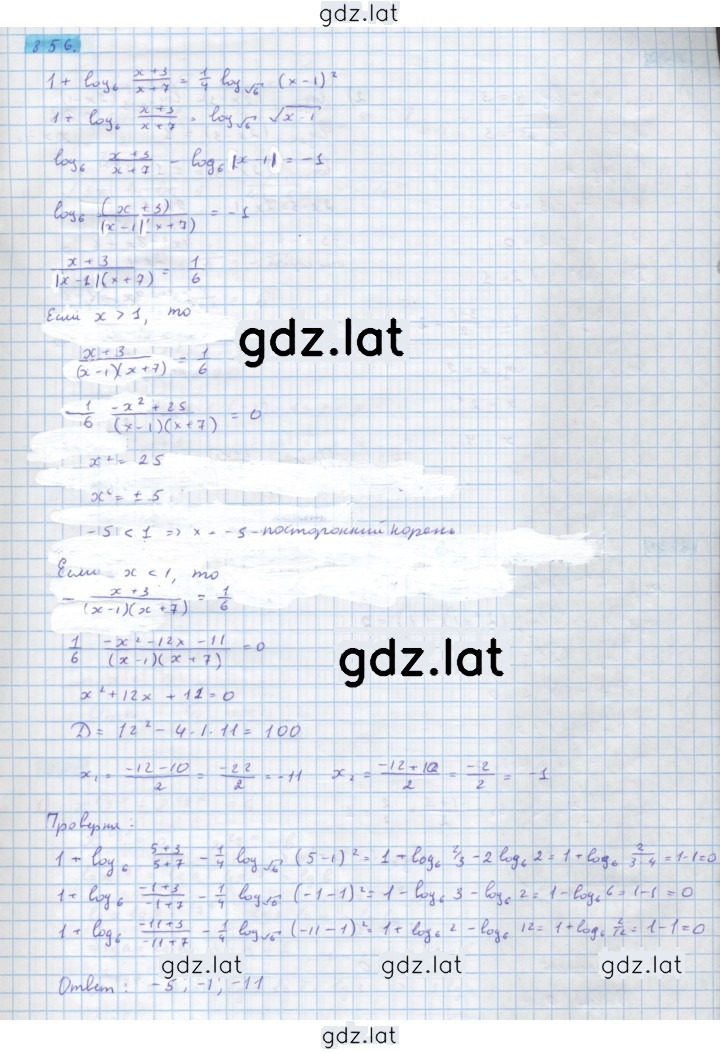 gdz.lat
856.
1 + log₆ (x+3)/(x+7) = 1/4 log_√6 (x-1)²
1 + log₆ (x+3)/(x+7) = log_√6 √(x-1)
log₆ (x+3)/(x+7) - log₆ |x-1| = -1
log₆ (x+3)/(|x-1|(x+7) = -1
(x+3)/(|x-1|(x+7)) = 1/6
Если x > 1, то
gdz.lat
(x+3)/((x-1)(x+7)) = 1/6
1/6 (-x²+25)/((x-1)(x+7)) = 0
x² = 25
x² = ± 5
-5 < 1 => x = -5 - посторонний корень
Если x < 1, то
- (x+3)/((x-1)(x+7)) = 1/6
gdz.lat
1/6 (-x²-12x-11)/((x-1)(x+7)) = 0
x² + 12x + 11 = 0
D = 12² - 4·1·11 = 100
x₁ = (-12-10)/2 = -22/2 = -11 x₂ = (-12+10)/2 = -2/2 = -1
Проверка:
1 + log₆ (5+3)/(5+7) - 1/4 log_√6 (5-1)² = 1 + log₆ 2/3 - 2 log₆ 2 = 1 + log₆ 2/(3·4) = 1-1=0
1 + log₆ (-1+3)/(-1+7) - 1/4 log_√6 (-1-1)² = 1 - log₆ 3 - log₆ 2 = 1 - log₆ 6 = 1-1 = 0
1 + log₆ (-11+3)/(-11+7) - 1/4 log_√6 (-11-1)² = 1 + log₆ 2 - log₆ 12 = 1 + log₆ 2/12 = 1-1=0
gdz.lat gdz.lat gdz.lat
Ответ: -5; -1; -11
gdz.lat